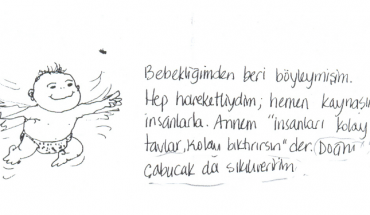 Bebekliğimden beri böyleymişim.
Hep hareketliydim; hemen kaynaşır
insanlarla. Annem "insanları kolay
tavlar, kolay bıktırırsın" der. Doğru
çabucak da sıkılıveririm.